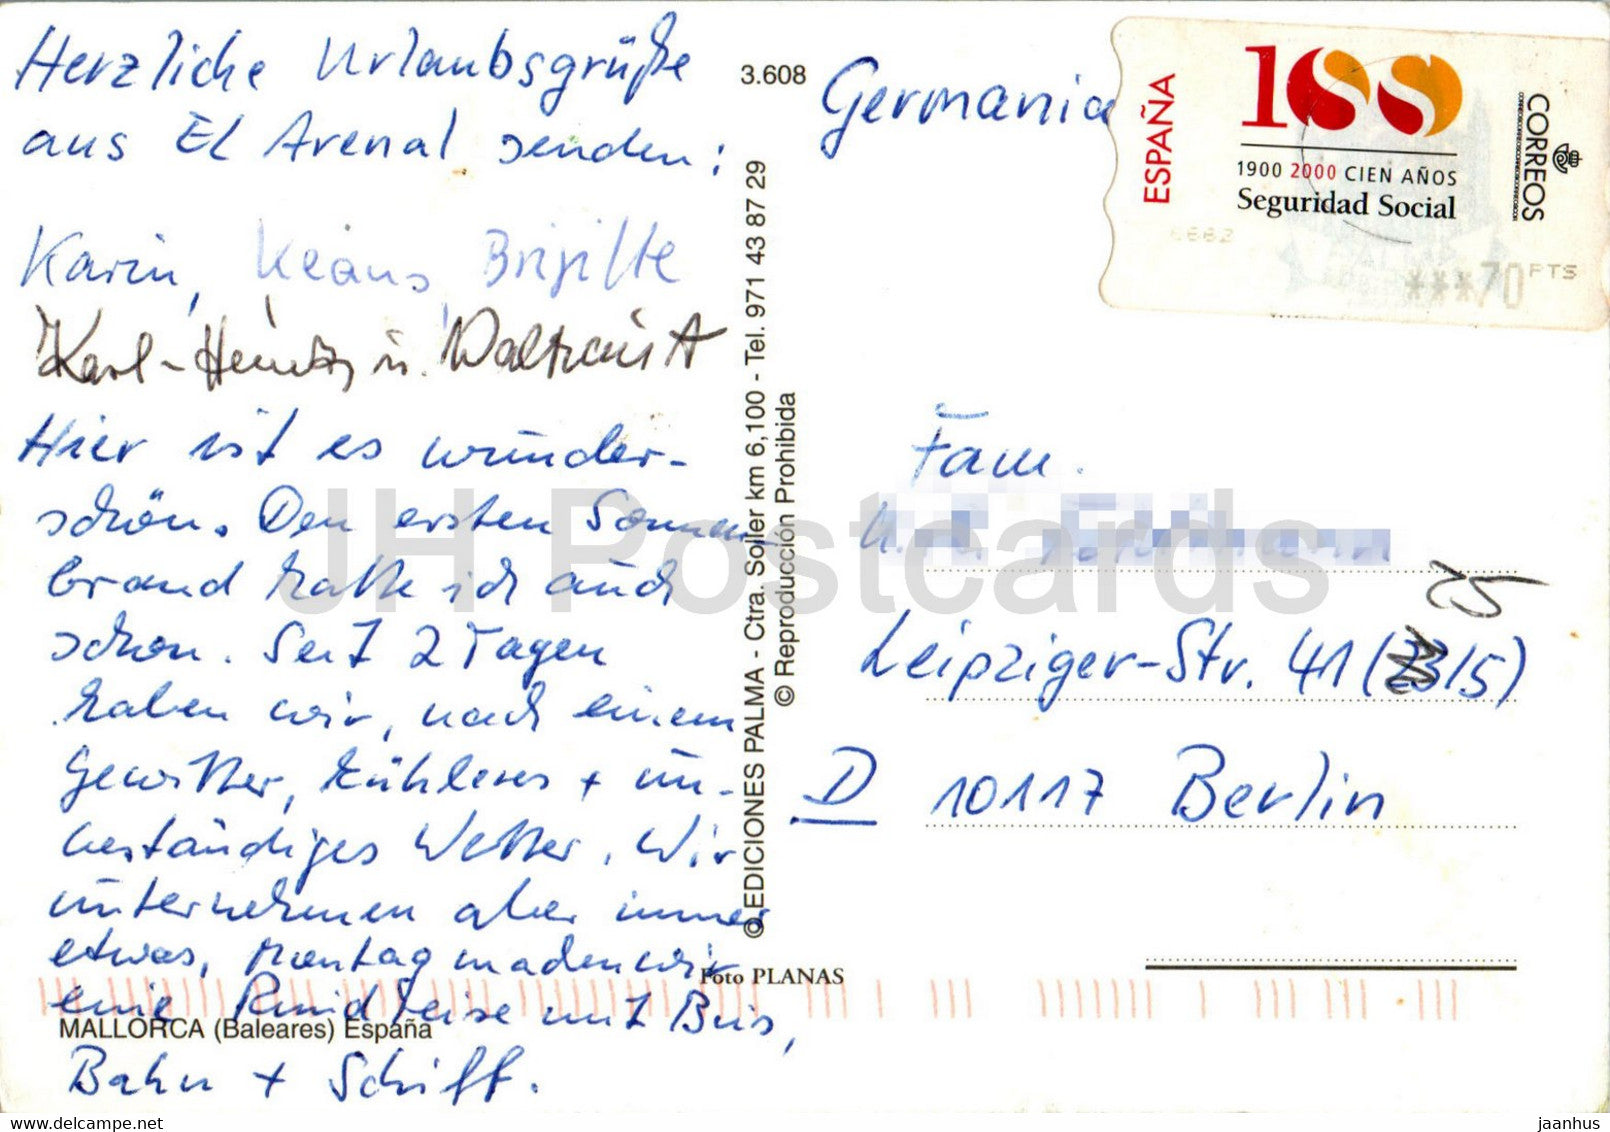 Herzliche Urlaubsgrüße
aus El Arenal senden:
Karin, Klaus, Brigitte
Karl-Heinz u. Waltraut
Hier ist es wunder-
schön. Den ersten Sonnen-
brand hatte ich auch
schon. Seit 2 Tagen
haben wir, nach einem
Gewitter, kühleres + un-
beständiges Wetter. Wir
unternehmen aber immer
etwas, Montag machen wir
eine Rundreise mit Bus,
Bahn + Schiff.
MALLORCA (Baleares) España
3.608
© EDICIONES PALMA - Ctra. Soller km 6,100 - Tel. 971 43 87 29
© Reproducción Prohibida
Foto PLANAS
Germania
ESPAÑA
100
1900 2000 CIEN AÑOS
Seguridad Social
CORREOS
***70 PTS
Fam.
25
Leipziger-Str. 41 (/5)
D 10117 Berlin
JH Postcards
www.delcampe.net
jaanhus